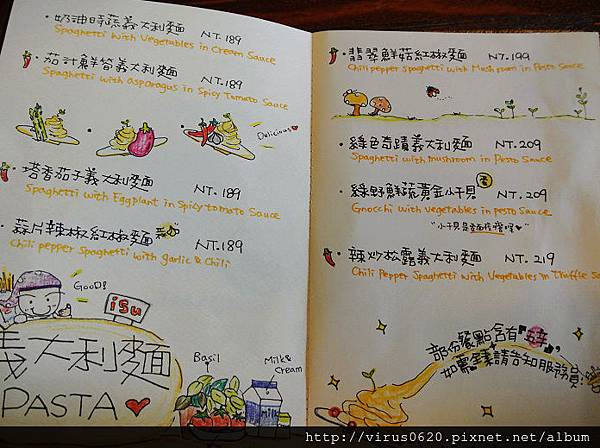 ·奶油時蔬義大利麵 NT.189
Spaghetti with Vegetables in Cream Sauce
·茄汁鮮筍義大利麵 NT.189
Spaghetti with asparagus in Spicy Tomato Sauce
Delicious
·塔香茄子義大利麵 NT.189
Spaghetti with Eggplant in Spicy tomato Sauce
·蒜片辣椒紅椒麵 NT.189
Chili pepper spaghetti with garlic & Chili
Good!
isu
義大利麵
PASTA ♥
Basil
Milk & Cream
·翡翠鮮菇紅椒麵 NT.199
Chili pepper spaghetti with Mushroom in Pesto Sauce
·綠色奇蹟義大利麵 NT.209
Spaghetti with mushroom in Pesto Sauce
·綠野鮮蔬黃金小子貝 NT.209
Gnocchi with vegetables in pesto Sauce
·辣炒松露義大利麵 NT.219
Chili Pepper Spaghetti with Vegetables in Truffle
部份餐點含有"五辛",
如需素食請告知服務員!
http://virus0620.pixnet.net/album